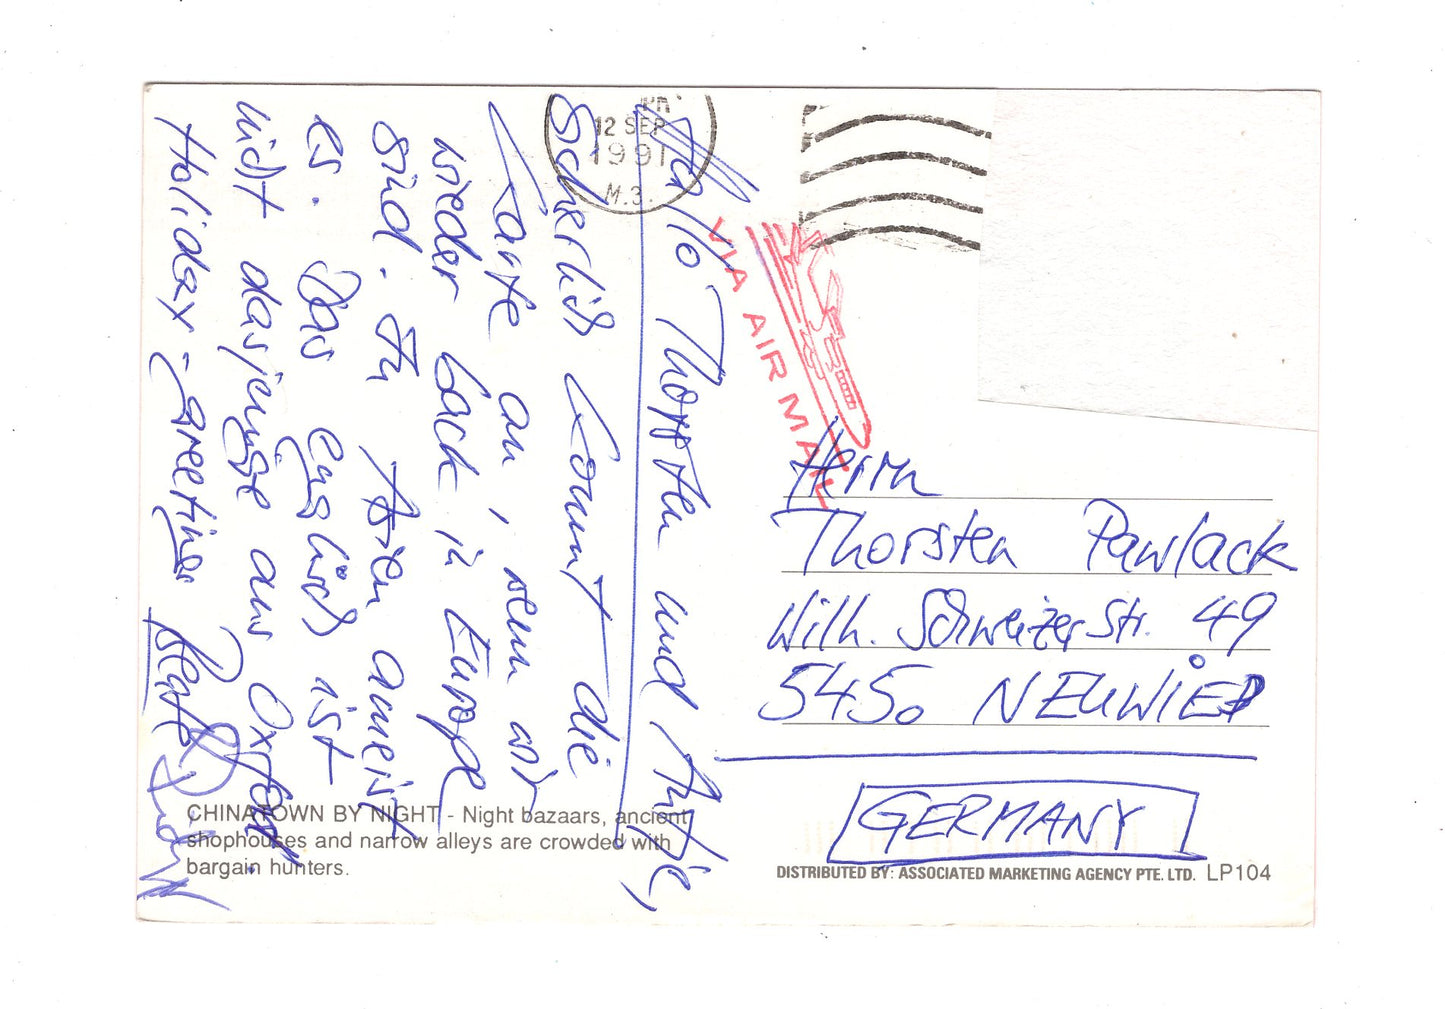 Hallo Thorsten und Antje,
Sicherlich kommt die
Karte an, wenn wir
wieder back in Europe
sind. In Asien ameist
es. Das englisch ist
nicht dasjenige aus Oxford
Holiday-greetings Beat &
12 SEP
1991
M.3.
VIA AIR MAIL
Herrn
Thorsten Pawlack
Wilh. Schweizer Str. 49
5450 NEUWIED
GERMANY
CHINATOWN BY NIGHT - Night bazaars, ancient
shophouses and narrow alleys are crowded with
bargain hunters.
DISTRIBUTED BY: ASSOCIATED MARKETING AGENCY PTE. LTD. LP104